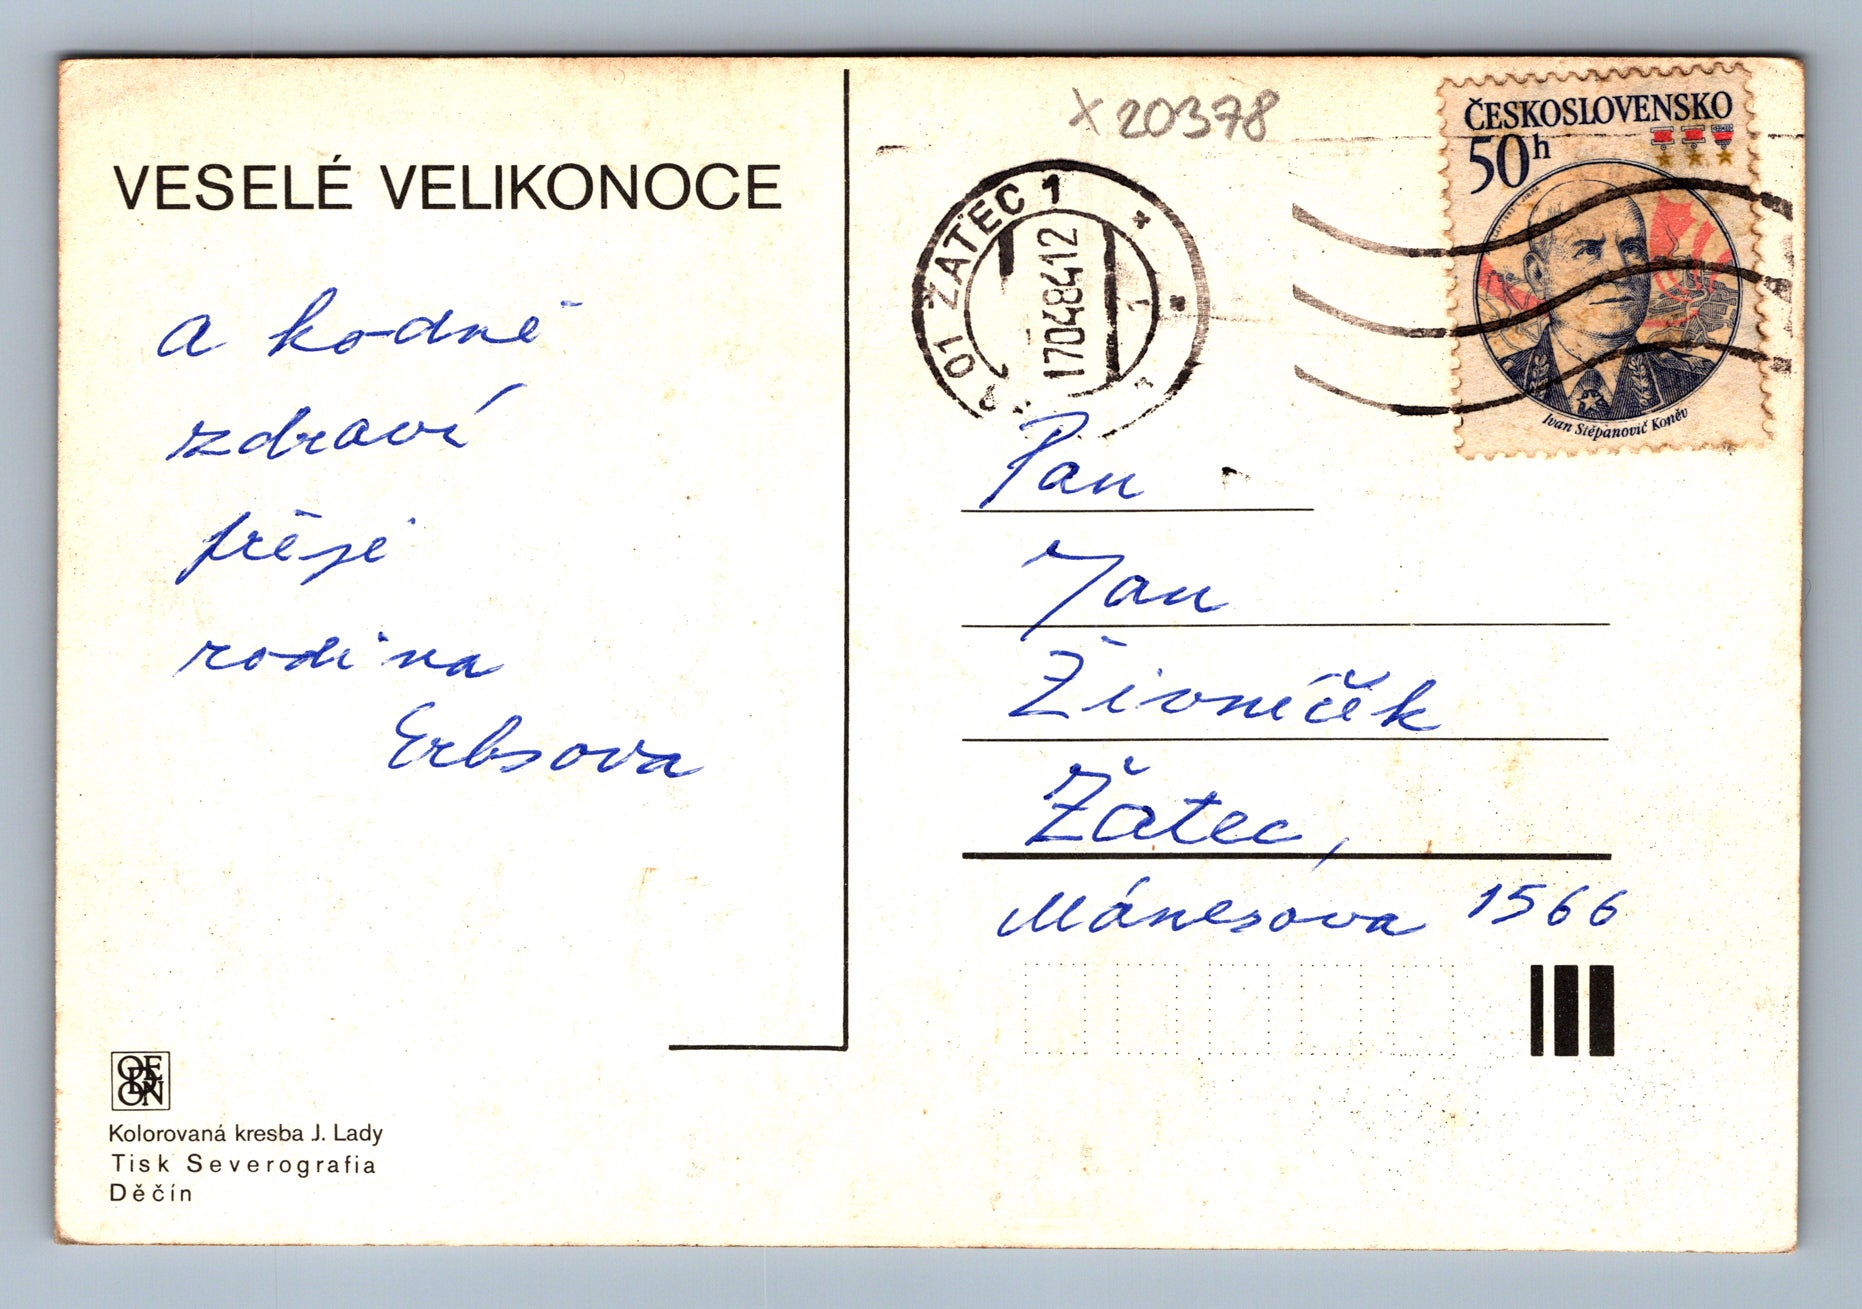 VESELÉ VELIKONOCE
a hodně
zdraví
přeje
rodina
Erbsova
ODEON
Kolorovaná kresba J. Lady
Tisk Severografia
Děčín
X 20378
01 ŽATEC 1
17048412
1
ČESKOSLOVENSKO
50h
Ivan Stěpanovič Koněv
Pan
Jan
Živníček
Žatec,
Mánesova 1566